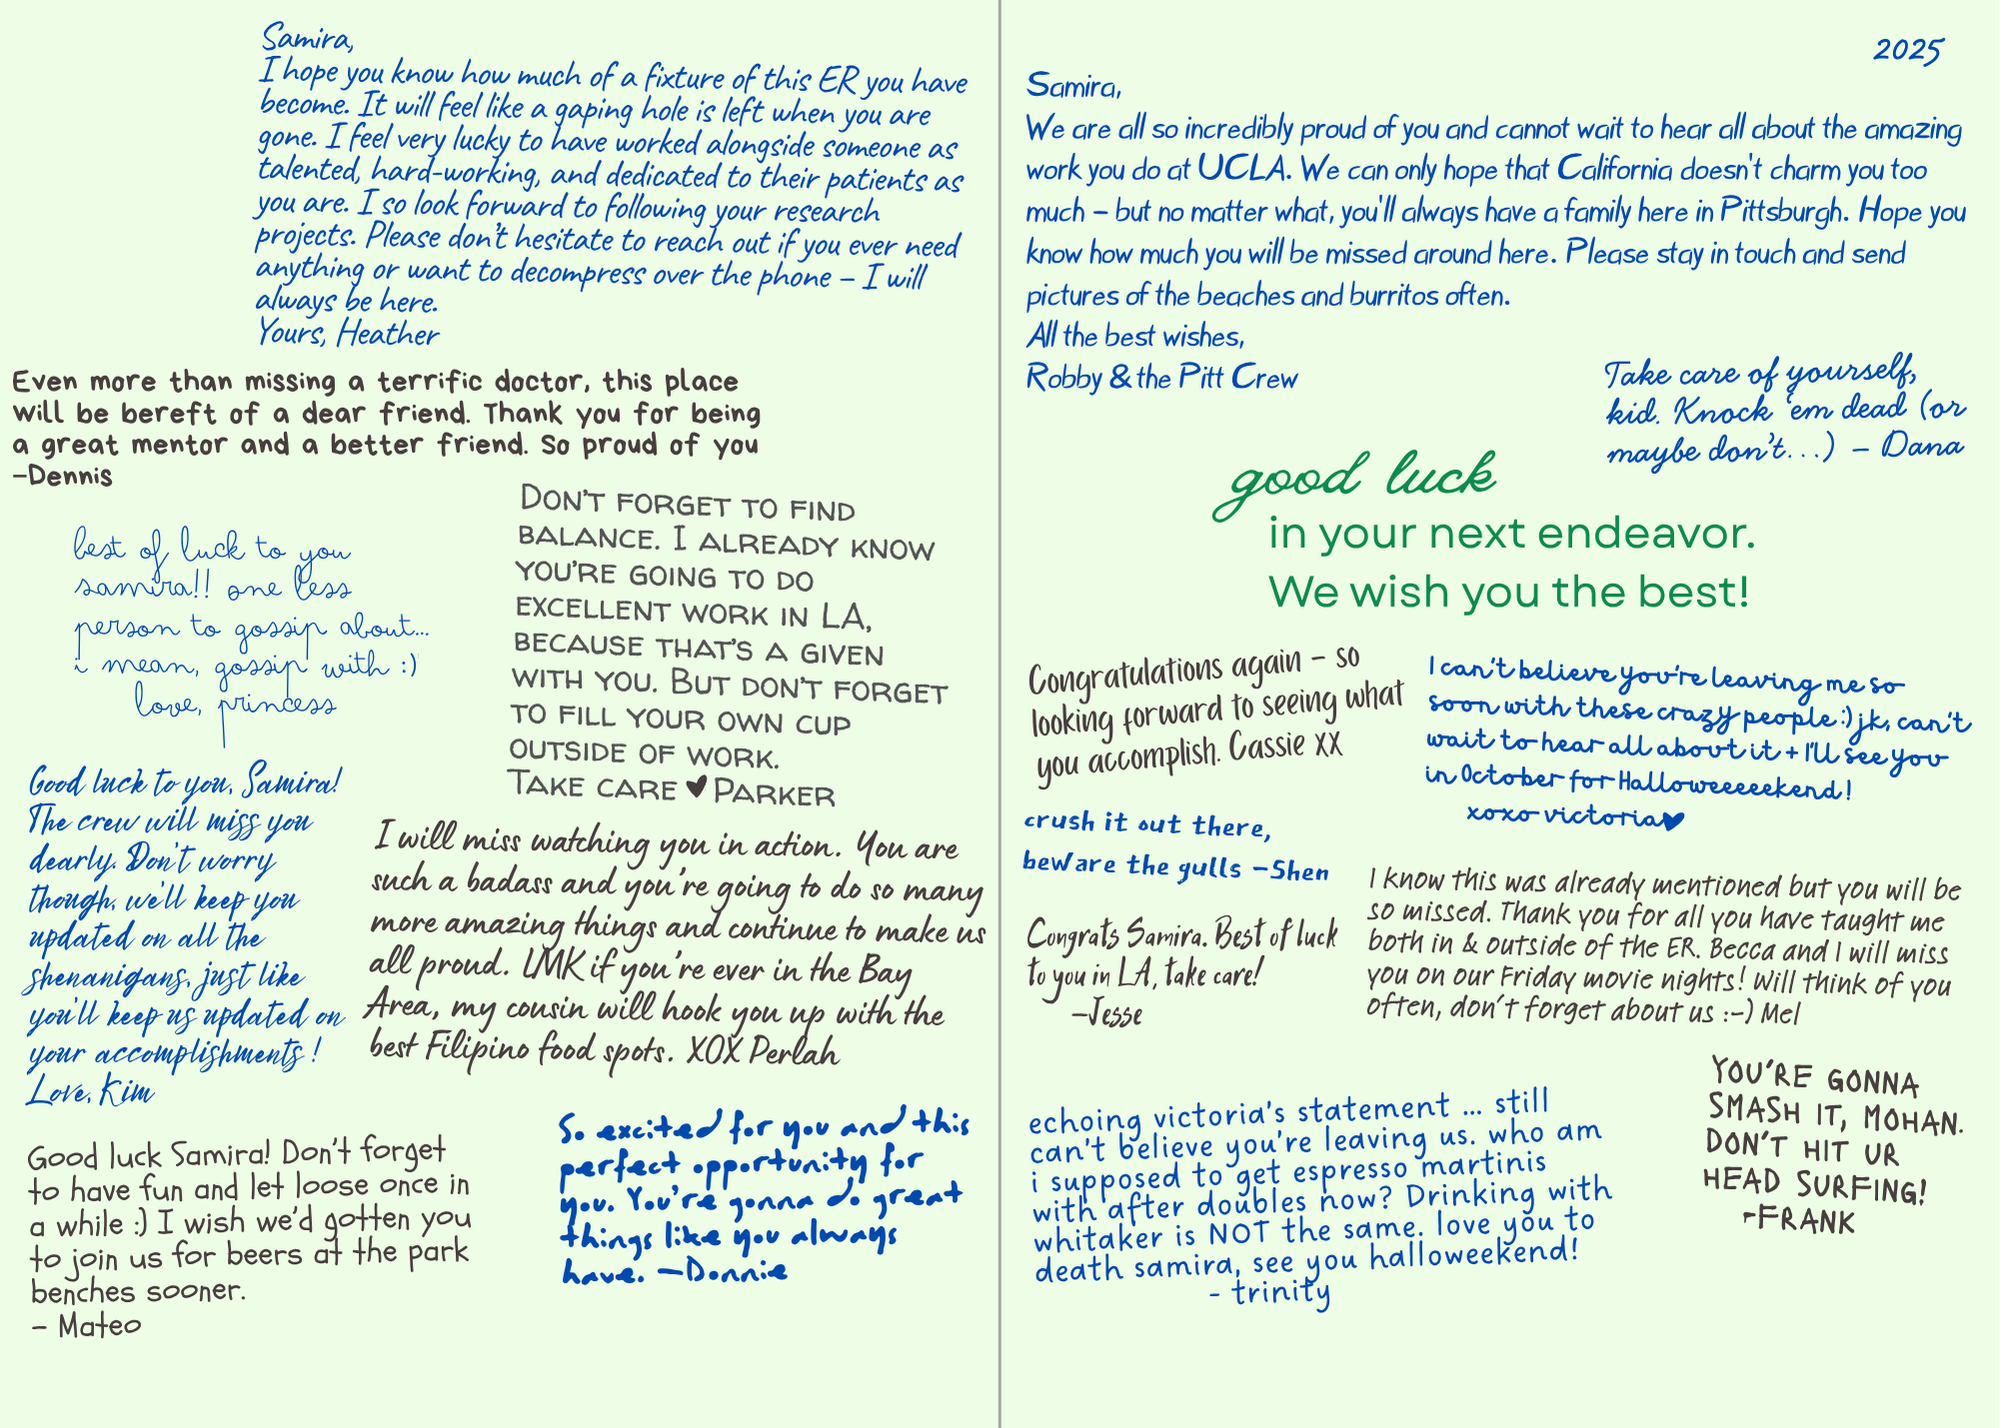 Samira,
I hope you know how much of a fixture of this ER you have
become. It will feel like a gaping hole is left when you are
gone. I feel very lucky to have worked alongside someone as
talented, hard-working, and dedicated to their patients as
you are. I so look forward to following your research
projects. Please don't hesitate to reach out if you ever need
anything or want to decompress over the phone – I will
always be here.
Yours, Heather
Even more than missing a terrific doctor, this place
will be bereft of a dear friend. Thank you for being
a great mentor and a better friend. So proud of you
-Dennis
DON'T FORGET TO FIND
BALANCE. I ALREADY KNOW
YOU'RE GOING TO DO
EXCELLENT WORK IN LA,
BECAUSE THAT'S A GIVEN
WITH YOU. BUT DON'T FORGET
TO FILL YOUR OWN CUP
OUTSIDE OF WORK.
TAKE CARE ♥ PARKER
best of luck to you
samira!! one less
person to gossip about...
i mean, gossip with :)
love, princess
Good luck to you, Samira!
The crew will miss you
dearly. Don't worry
though, we'll keep you
updated on all the
shenanigans, just like
you'll keep us updated on
your accomplishments!
Love, Kim
I will miss watching you in action. You are
such a badass and you're going to do so many
more amazing things and continue to make us
all proud. LMK if you're ever in the Bay
Area, my cousin will hook you up with the
best Filipino food spots. XOX Perlah
Good luck Samira! Don't forget
to have fun and let loose once in
a while :) I wish we'd gotten you
to join us for beers at the park
benches sooner.
- Mateo
So excited for you and this
perfect opportunity for
you. You're gonna do great
things like you always
have. -Donnie
2025
Samira,
We are all so incredibly proud of you and cannot wait to hear all about the amazing
work you do at UCLA. We can only hope that California doesn't charm you too
much – but no matter what, you'll always have a family here in Pittsburgh. Hope you
know how much you will be missed around here. Please stay in touch and send
pictures of the beaches and burritos often.
All the best wishes,
Robby & the Pitt Crew
Take care of yourself,
kid. Knock 'em dead (or
maybe don't...) – Dana
good luck
in your next endeavor.
We wish you the best!
Congratulations again – so
looking forward to seeing what
you accomplish. Cassie XX
I can't believe you're leaving me so
soon with these crazy people :) jk, can't
wait to hear all about it + I'll see you
in October for Halloweeeeekend!
xoxo victoria♥
crush it out there,
beware the gulls -Shen
Congrats Samira. Best of luck
to you in LA, take care!
-Jesse
I know this was already mentioned but you will be
so missed. Thank you for all you have taught me
both in & outside of the ER. Becca and I will miss
you on our Friday movie nights! Will think of you
often, don't forget about us :-) Mel
echoing victoria's statement ... still
can't believe you're leaving us. who am
i supposed to get espresso martinis
with after doubles now? Drinking with
whitaker is NOT the same. love you to
death samira, see you halloweekend!
- trinity
YOU'RE GONNA
SMASH IT, MOHAN.
DON'T HIT UR
HEAD SURFING!
-FRANK